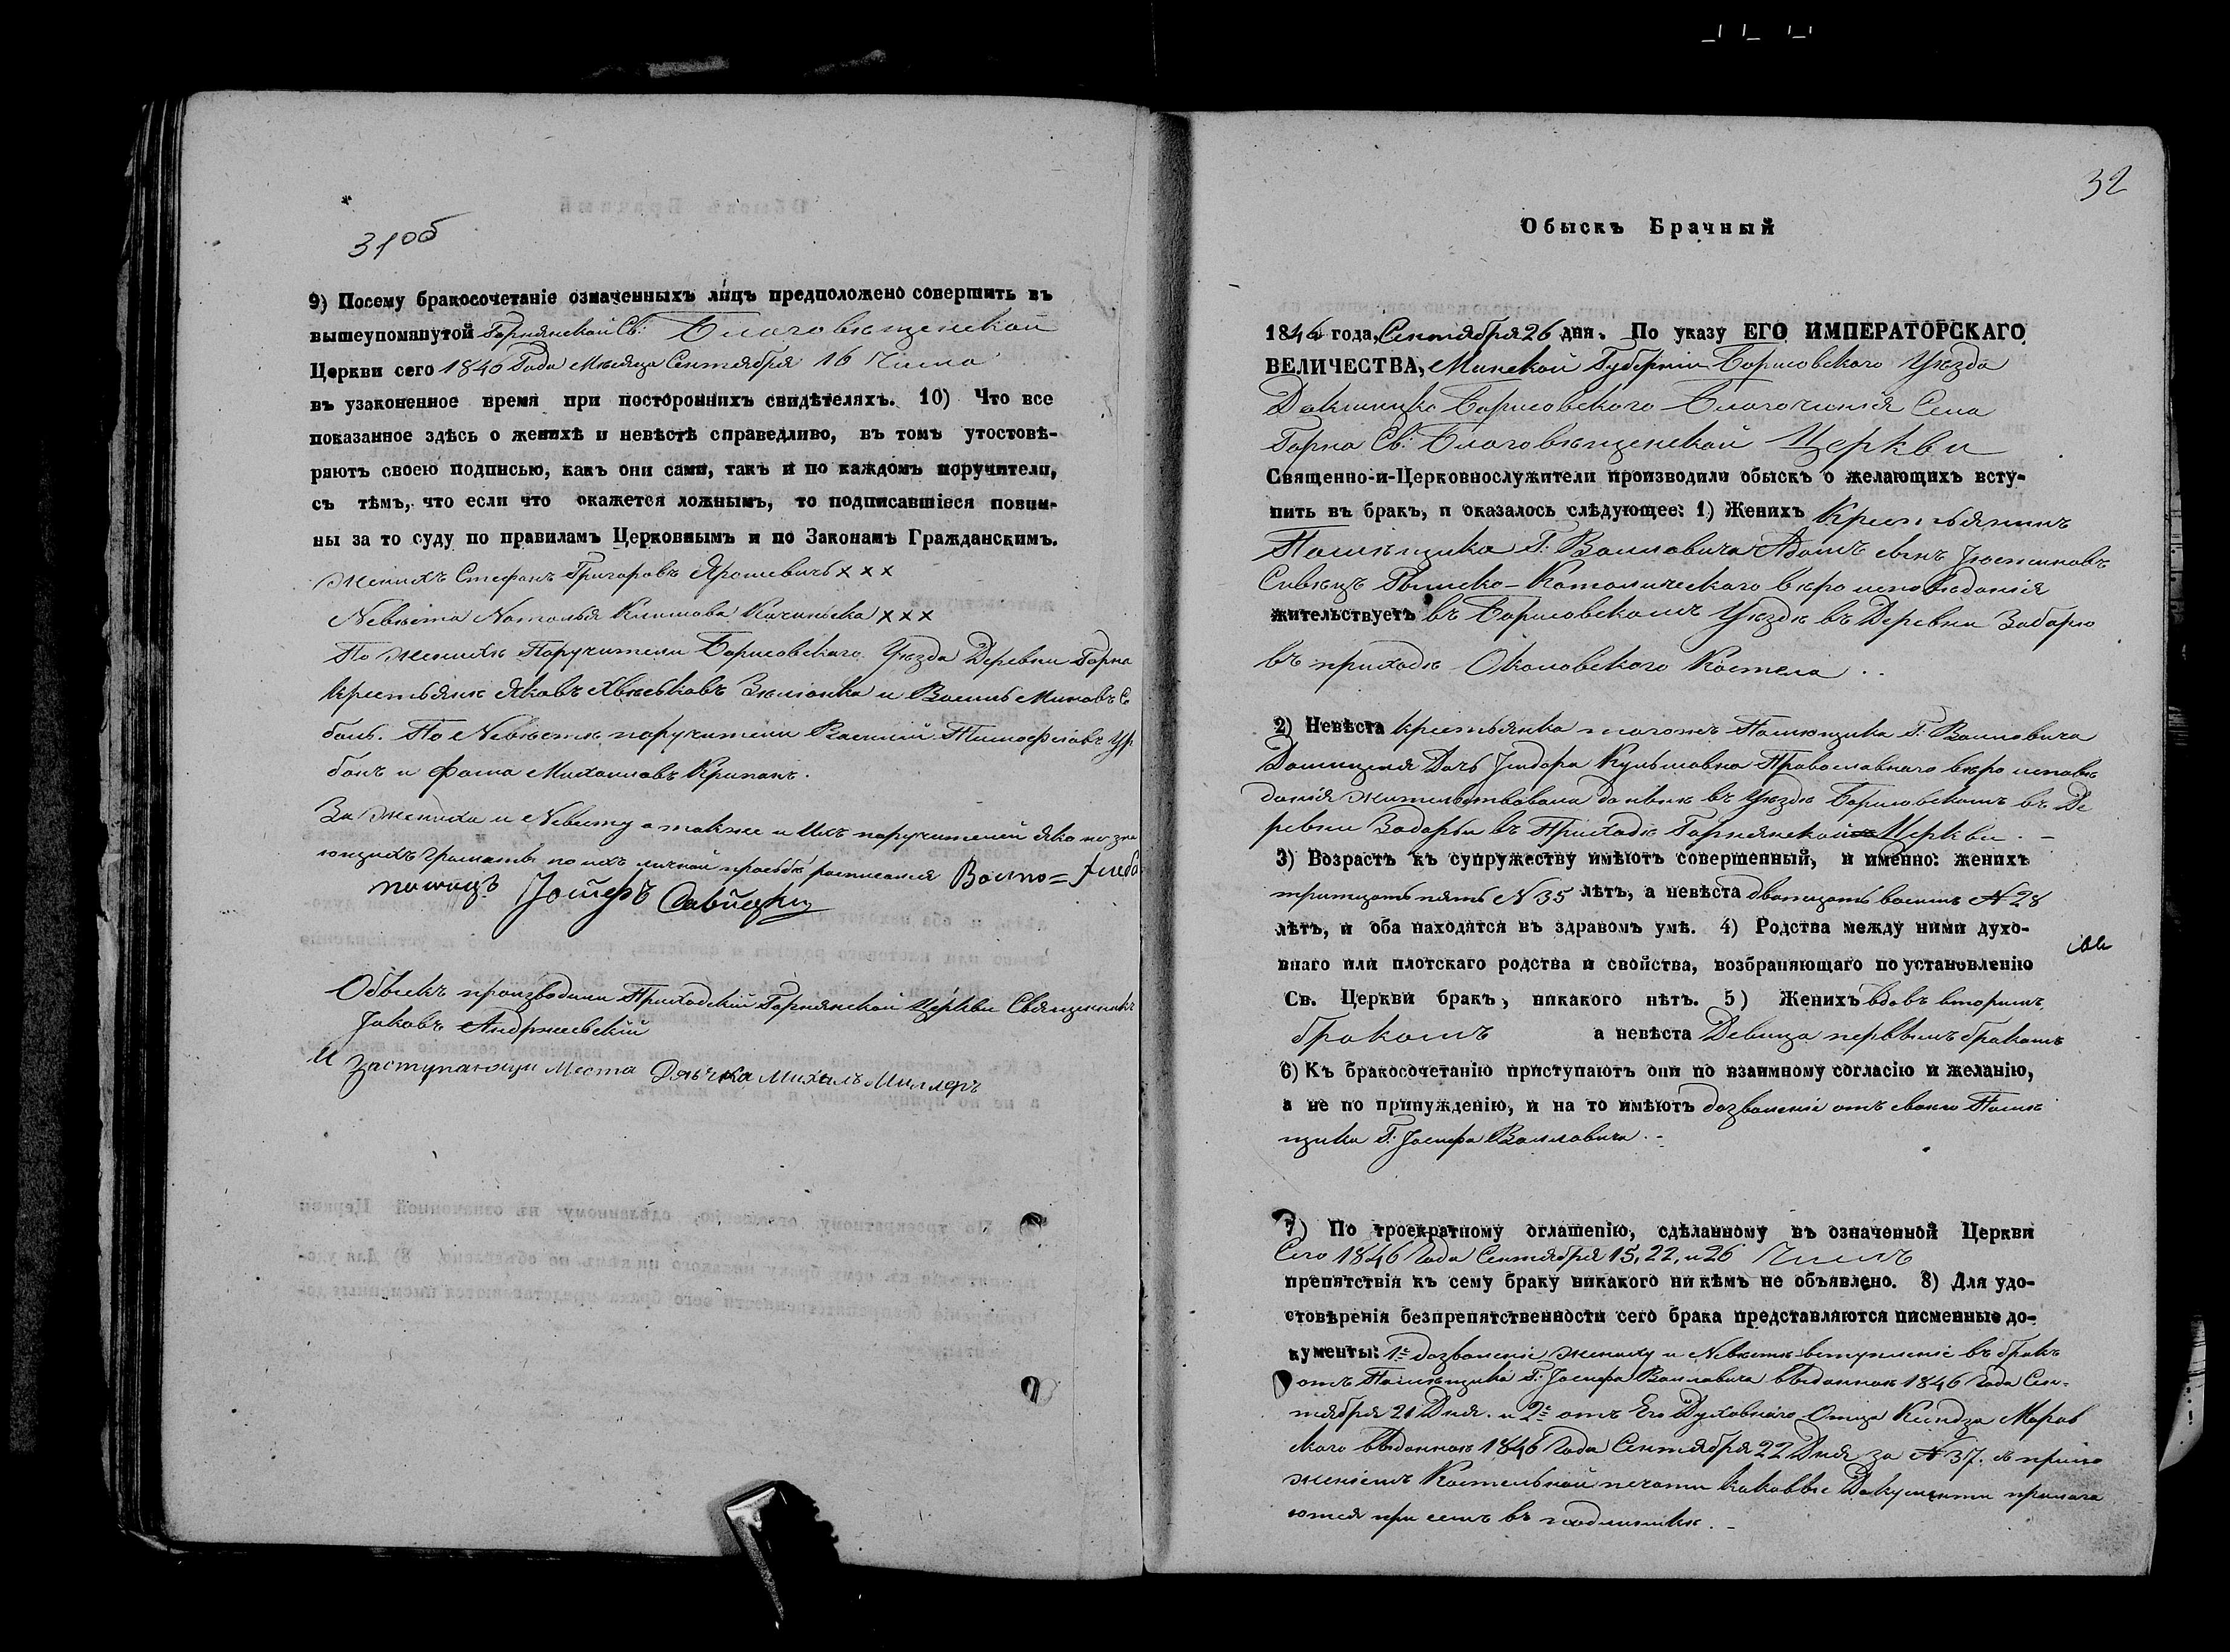 31об
9) Посему бракосочетаніе означенныхъ лицъ предположено совершить въ
вышеупомянутой Горнянской Св: Благовѣщенской
Церкви сего 1846 Года Мѣсяца Сентября 16 Числа
въ узаконенное время при постороннихъ свидѣтеляхъ. 10) Что все
показанное здѣсь о женихѣ и невѣстѣ справедливо, въ томъ утостовѣ-
ряютъ своею подписью, какъ они сами, такъ и по каждомъ поручители,
съ тѣмъ, что если что окажется ложнымъ, то подписавшіеся повин-
ны за то суду по правиламъ Церковнымъ и по Законамъ Гражданскимъ.
Женихъ Стефанъ Григоровъ Ярошевичъ x x x
Невѣста Наталья Климова x x x
По женихѣ Поручители Борисовскаго Уѣзда Деревни Горна
крестьяне Яковъ Зѣлiонка и Василь Миновъ С
боль. По Невѣстѣ поручители Василій Тимофѣовъ Ур
банъ и Фома Михаиловъ
За Жениха и Невѣсту а также и Ихъ поручителей яко незна
ющихъ грамоты по ихъ личной просьбѣ росписался Вольно=
Савицкій
Обыскъ производили Приходскій Горнянской Церкви Священникъ
Іаковъ Андржеевскій
И заступающи Места Дячка Михалъ Миллеръ
32
Обыскъ Брачный
1846 года, Сентября 26 дня. По указу ЕГО ИМПЕРАТОРСКАГО
ВЕЛИЧЕСТВА, Минской Губерніи Борисовского Уѣзда
Докшицко Борисовского Благочинія Села
Горна Св: Благовѣщенской Церкви
Священно-и-Церковнослужители производили обыскъ о желающихъ всту-
пить въ бракъ, и оказалось слѣдующее: 1) Женихъ Крестьянинъ
Помѣщика Г: Воловича Адамъ сынъ Юстиновъ
Сивецъ Римско-Католическаго вѣро исповѣданія
жительствуетъ въ Борисовскомъ Уѣздѣ въ Деревни Забарю
въ приходѣ Околовского Костела ..
2) Невѣста крестьянка тогожъ Помющика Г: Воловича
Домицеля Дочь Ізидора Кульшовна Православнаго вѣро исповѣ
данія жительствовала донынѣ въ Уѣздѣ Борисовскомъ въ Де
ревни Задарьи въ Приходѣ Горнянской Церкви . –
3) Возрастъ къ супружеству имѣютъ совершенный, и именно: женихъ
тритцать пять N 35 лѣтъ, а невѣста дватцать восимъ N 28
лѣтъ, и оба находятся въ здравомъ умѣ. 4) Родства между ними духо-
внаго или плотскаго родства и свойства, возбраняющаго по установленію
Св. Церкви бракъ, никакого нѣтъ. 5) Женихъ вдовъ вторымъ
бракомъ а невѣста Девица первымъ бракомъ
6) Къ бракосочетанію приступаютъ они по взаимному согласію и желанію,
а не по принужденію, и на то имѣютъ дозволеніе отъ своего Помѣ
щика Г: Іосифа Воловича . -
7) По троекратному оглашенію, сдѣланному въ означенной Церкви
Сего 1846 Года Сентября 15, 22, и 26 Числъ
препятствія къ сему браку никакого никѣмъ не объявлено. 8) Для удо-
стовѣренія безпрепятственности сего брака представляются писменные до-
кументы: 1е дозволеніе жениху и Невѣстѣ вступленіе въ бракъ
отъ Помѣщика Г: Іосифа Воловича выданное 1846 Года Сен-
тября 21 Дня. и 2е отъ Его Духовнаго Отца Ксиндза Моров
скаго выданное 1846 Года Сентября 22 Дня за N 37. съ прило
женіемъ Костельной печати каковые Документы прилага
ются при семъ въ подлинникѣ. –